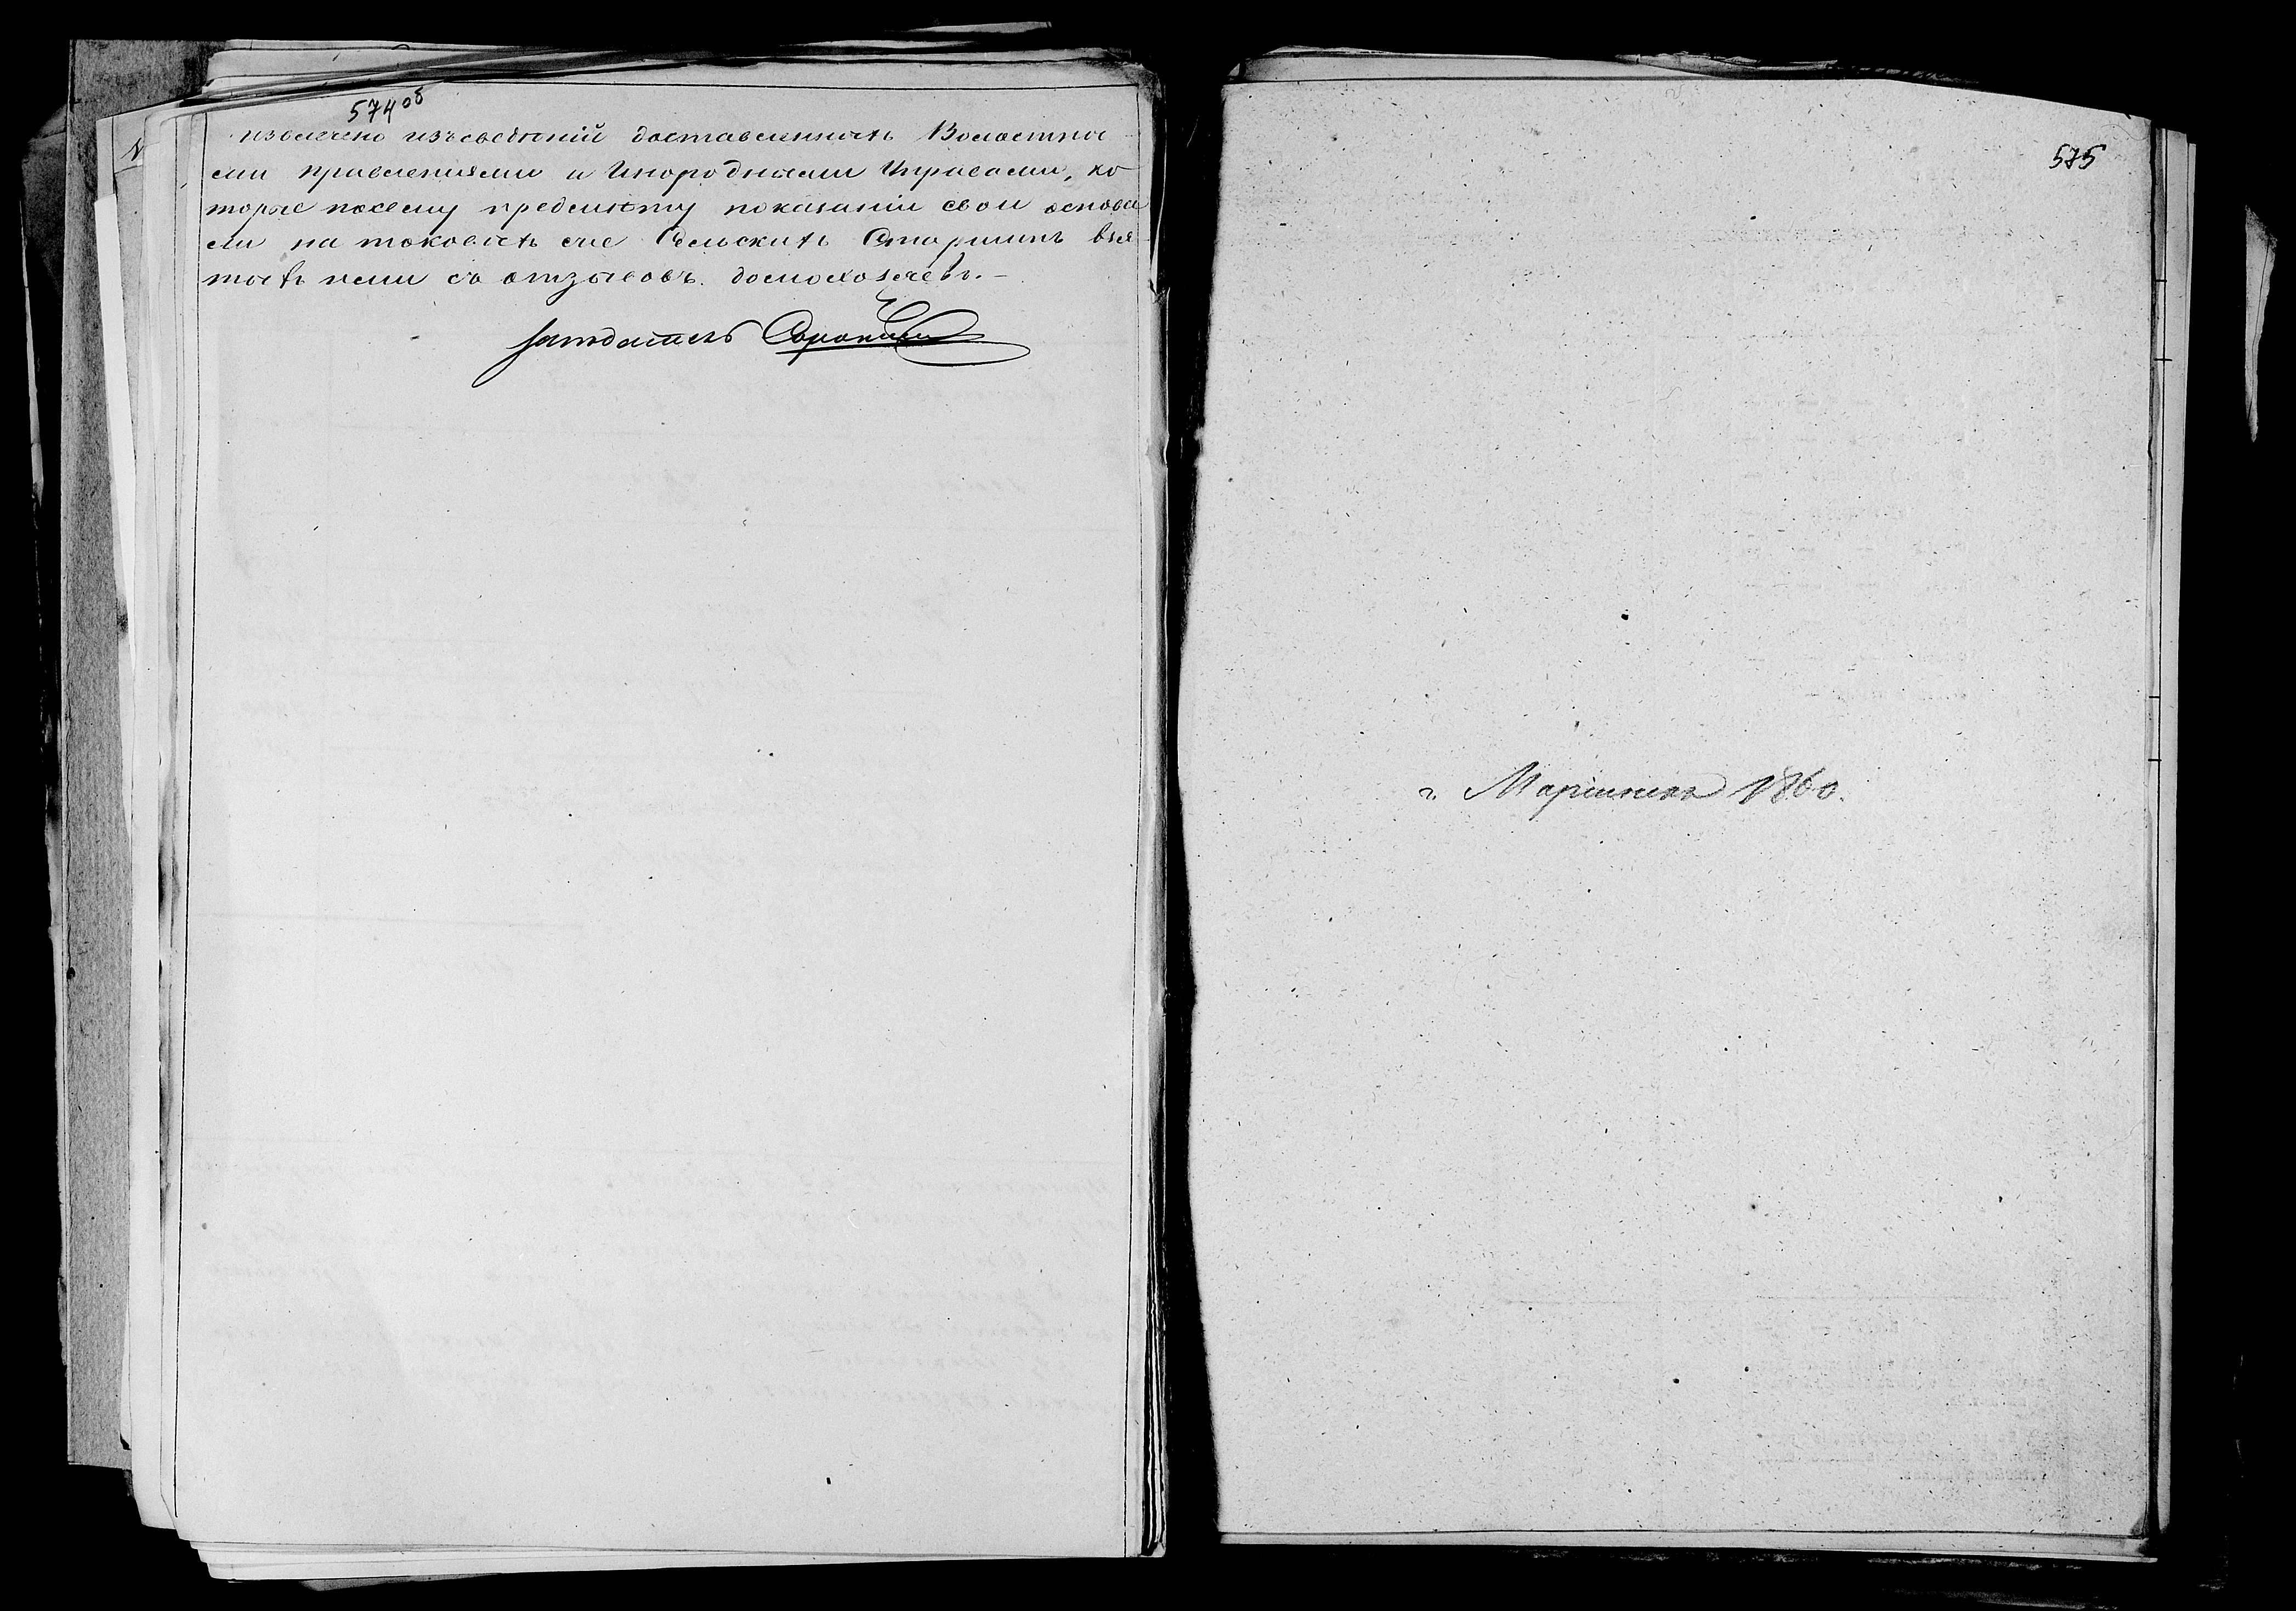 574 об
извлечено изъ сведѣній доставленныхъ Волостны
ми правленіями и Инородными Управами, ко
торые посему предмѣту показаніи свои основа
ли на таковыхъ же Сельскихъ Старшинъ взя
тыхъ ими съ отзывовъ домохозяевъ. –
Засѣдатель
575
г. Маріинскъ 1860.